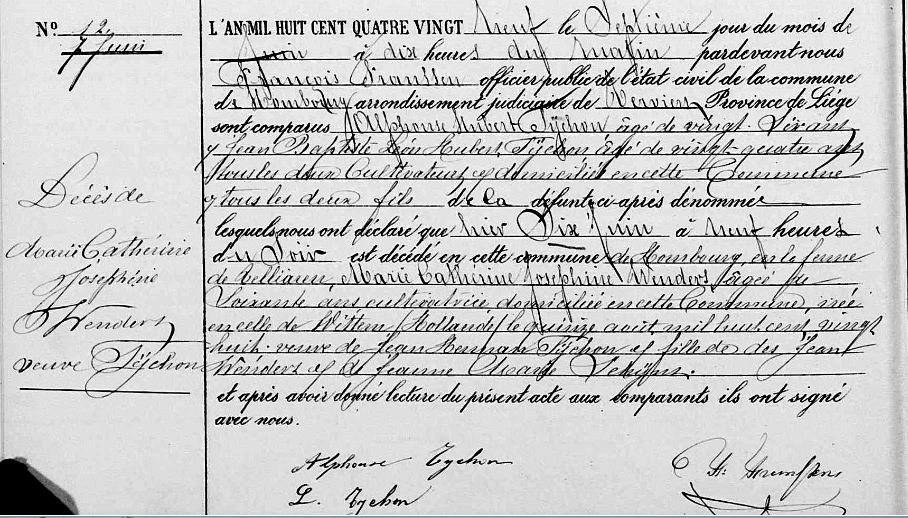 N.º 12.
7 Juin
Décès de
Marie Cathérine
Joséphine
Wenders
veuve Tÿchon
L'AN MIL HUIT CENT QUATRE VINGT Neuf le Septième jour du mois de
Juin à dix heures du matin pardevant nous
François Franssen officier public de l'état civil de la commune
de Hombourg arrondissement judiciaire de Verviers Province de Liége
sont comparus Alphonse Hubert Tÿchon âgé de vingt-six ans
et Jean Baptiste Léon Hubert Tÿchon âgé de vingt-quatre ans
tous les deux Cultivateurs et domiciliés en cette Commune
et tous les deux fils de la défunte ci-après dénommée
lesquels nous ont déclaré que hier Six Juin à neuf heures
du Soir est décédé en cette commune de Hombourg, en la ferme
de Marie Cathérine Joséphine Wenders, âgée de
Soixante ans cultivatrice domiciliée en cette Commune, née
en celle de Wittem (Hollande) le quinze août mil huit cent vingt
huit. veuve de Jean Herman Tÿchon et fille de des Jean
Wenders et de Jeanne Marie
et après avoir donné lecture du présent acte aux comparants ils ont signé
avec nous.
Alphonse Tychon
L. Tychon